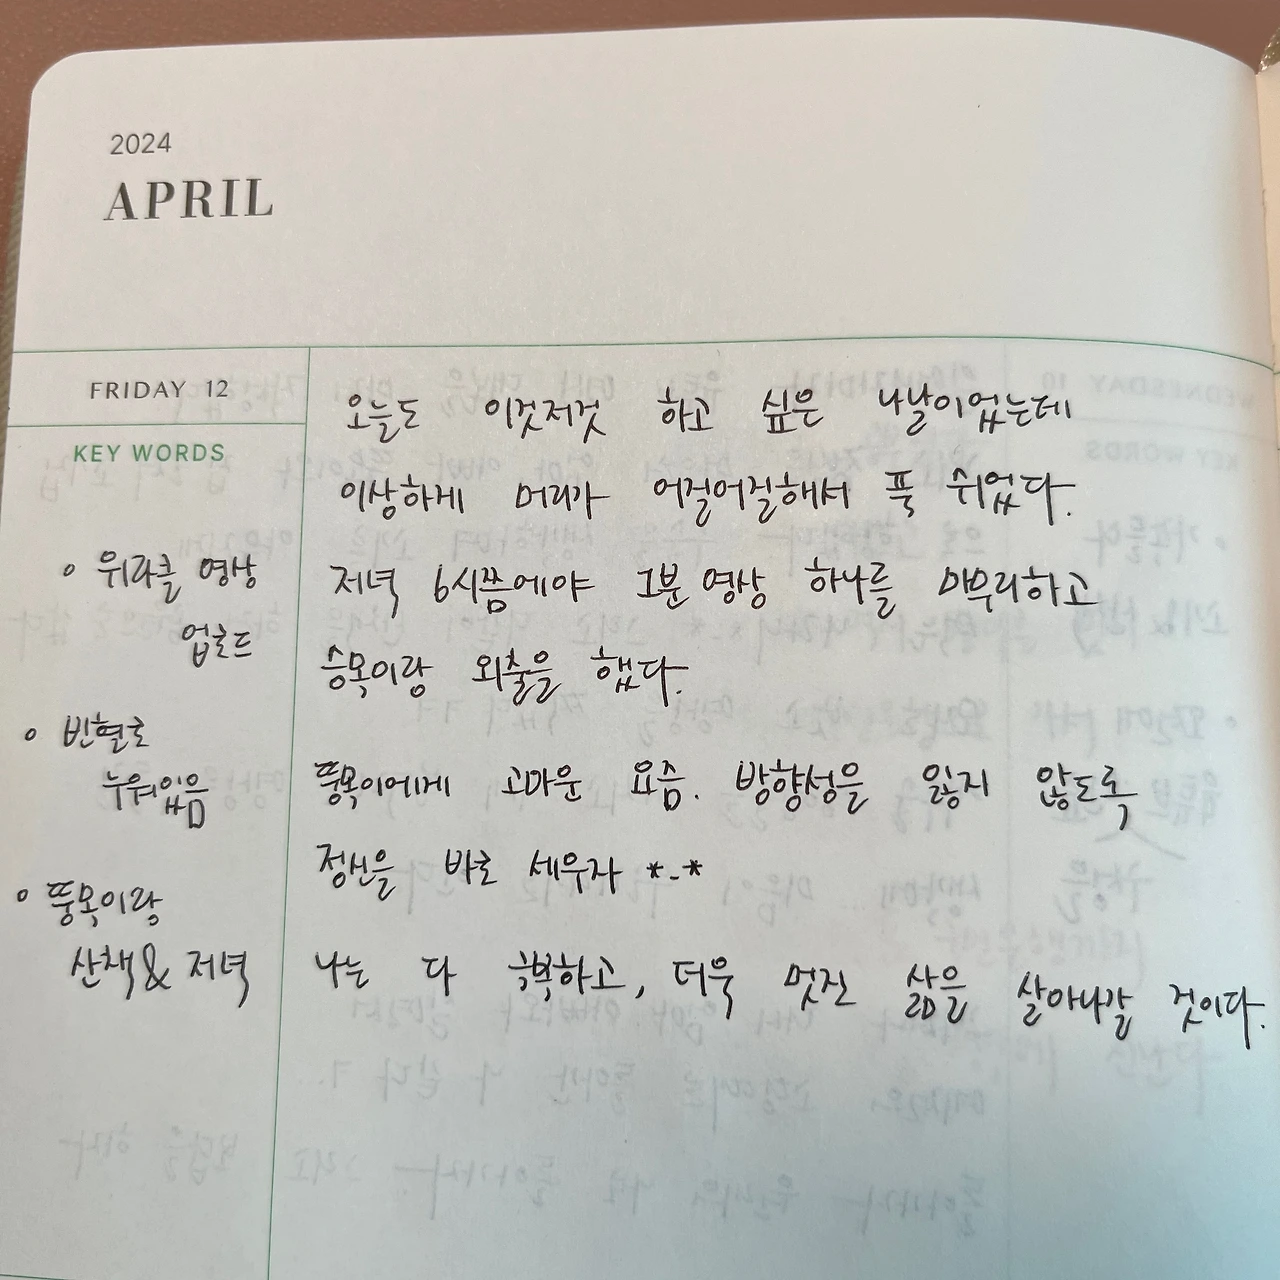 2024
APRIL
FRIDAY 12
KEY WORDS
• 위라클 영상
업로드
• 빈혈로
누워있음
• 뚱목이랑
산책 & 저녁
오늘도 이것저것 하고 싶은 나날이었는데
이상하게 머리가 어걸어걸해서 푹 쉬었다.
저녁 6시쯤에야 1분 영상 하나를 마무리하고
승목이랑 외출을 했다.
뚱목이에게 고마운 요즘. 방향성을 잃지 않도록
정신을 바로 세우자 *-*
나는 다 극복하고, 더욱 멋진 삶을 살아나갈 것이다.
WEDNESDAY 10
KEY WORDS